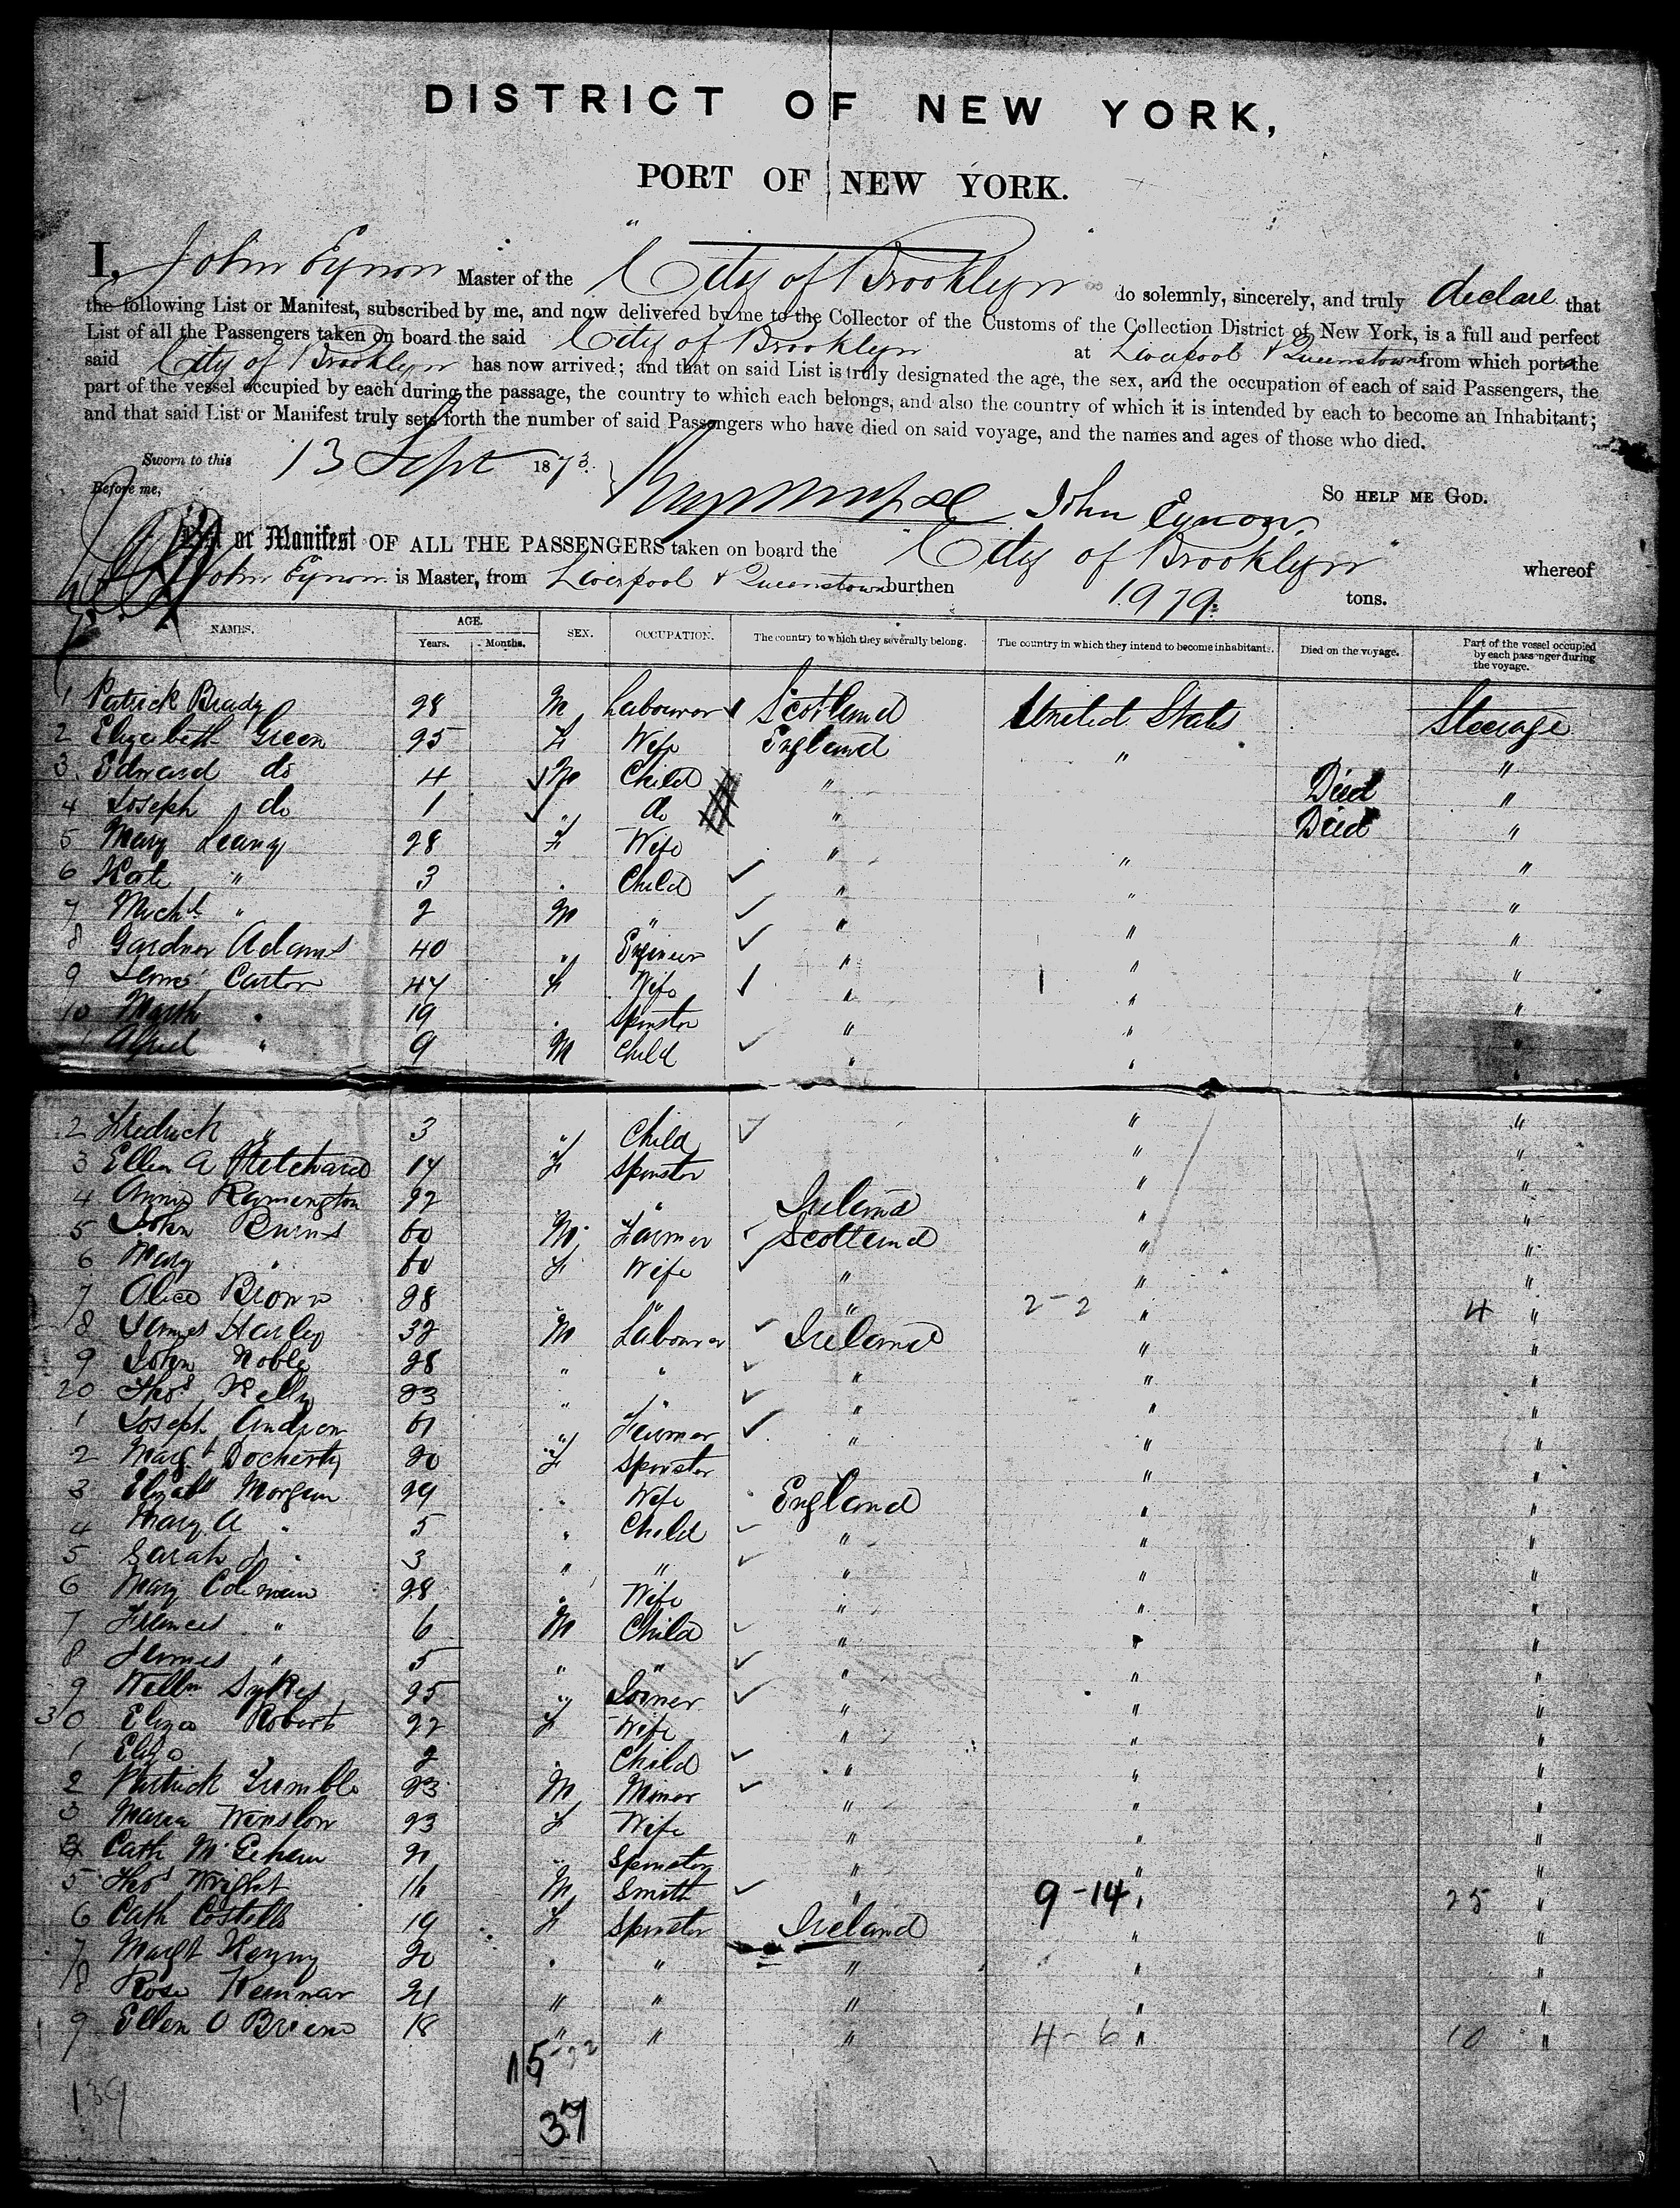 DISTRICT OF NEW YORK,
PORT OF NEW YORK.
I, John Eynon Master of the "City of Brooklyn" do solemnly, sincerely, and truly declare that
the following List or Manifest, subscribed by me, and now delivered by me to the Collector of the Customs of the Collection District of New York, is a full and perfect
List of all the Passengers taken on board the said City of Brooklyn at Liverpool & Queenstown from which port the
said City of Brooklyn has now arrived; and that on said List is truly designated the age, the sex, and the occupation of each of said Passengers, the
part of the vessel occupied by each during the passage, the country to which each belongs, and also the country of which it is intended by each to become an Inhabitant;
and that said List or Manifest truly sets forth the number of said Passengers who have died on said voyage, and the names and ages of those who died.
Sworn to this 13 Sept 1873. So HELP ME GOD.
Before me, John Eynon
List or Manifest OF ALL THE PASSENGERS taken on board the "City of Brooklyn" whereof
John Eynon is Master, from Liverpool & Queenstown burthen 1979 tons.
NAMES. AGE. Years. Months. SEX. OCCUPATION. The country to which they severally belong. The country in which they intend to become inhabitants. Died on the voyage. Part of the vessel occupied by each passenger during the voyage.
1 Patrick Brady 28 M Labourer Scotland United States Steerage
2 Elizabeth Green 25 F Wife England " "
3 Edward do 4 M Child " Died "
4 Joseph do 1 " do " Died "
5 Mary Leany 28 F Wife " " "
6 Kate " 3 . Child " " "
7 Michl " 2 M " " " "
8 Gardner Adams 40 " Engineer " " "
9 Carter 47 F Wife " " "
10 " 19 . Spinster " " "
1 Alfred " 9 M Child " " "
2 Fredrick " 3 " Child " "
3 Ellen A Pritchard 17 F Spinster " "
4 Annie Remington 22 " " Ireland " "
5 John Burns 60 M Farmer Scotland " "
6 Mary " 60 F Wife " " "
7 Alice Brown 28 " " " 2-2 " 4 "
8 James Harley 32 M Labourer Ireland " "
9 John Noble 28 " " " " "
20 Thos Kelly 23 " " " " "
1 Joseph Andrew 61 " Farmer " " "
2 Margt Docherty 20 F Spinster " "
3 Elizabth Morgan 29 . Wife England " "
4 Mary A " 5 " Child " " "
5 Sarah J " 3 " " " " "
6 Mary Coleman 28 " Wife " " "
7 Frances " 6 M Child " " "
8 James " 5 " " " " "
9 Willm Sykes 25 " Joiner " " "
30 Eliza Robert 22 F Wife " " "
1 Eliza 2 . Child " " "
2 Patrick Trumble 23 M Miner " " "
3 Maria Winslow 23 F Wife " " "
4 Cath 21 " Spinster " " "
5 Thos Wright 16 M Smith " 9-14 " 25 "
6 Cath Costello 19 F Spinster Ireland " "
7 Margt Kenny 20 . " " " "
8 Rose 21 " " " " "
9 Ellen O Brien 18 " " " 4-6 " 10 "
15-22
139
37